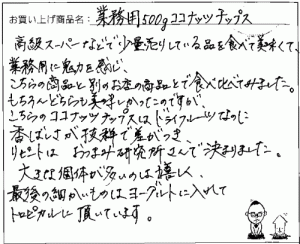 お買い上げ商品名：業務用500gココナッツチップス
高級スーパーなどで少量売りしている品を食べて美味しくて、
業務用に魅力を感じ
こちらの商品と別のお店の商品とで食べ比べてみました。
もちろんどちらも美味しかったのですが、
こちらのココナッツチップスはドライフルーツなのに
香ばしさが抜群で差がつき
リピートは おつまみ研究所さんで決まりました。
大きな個体が多いのは嬉しく、
最後の細かいものはヨーグルトに入れて
トロピカルに頂いています。